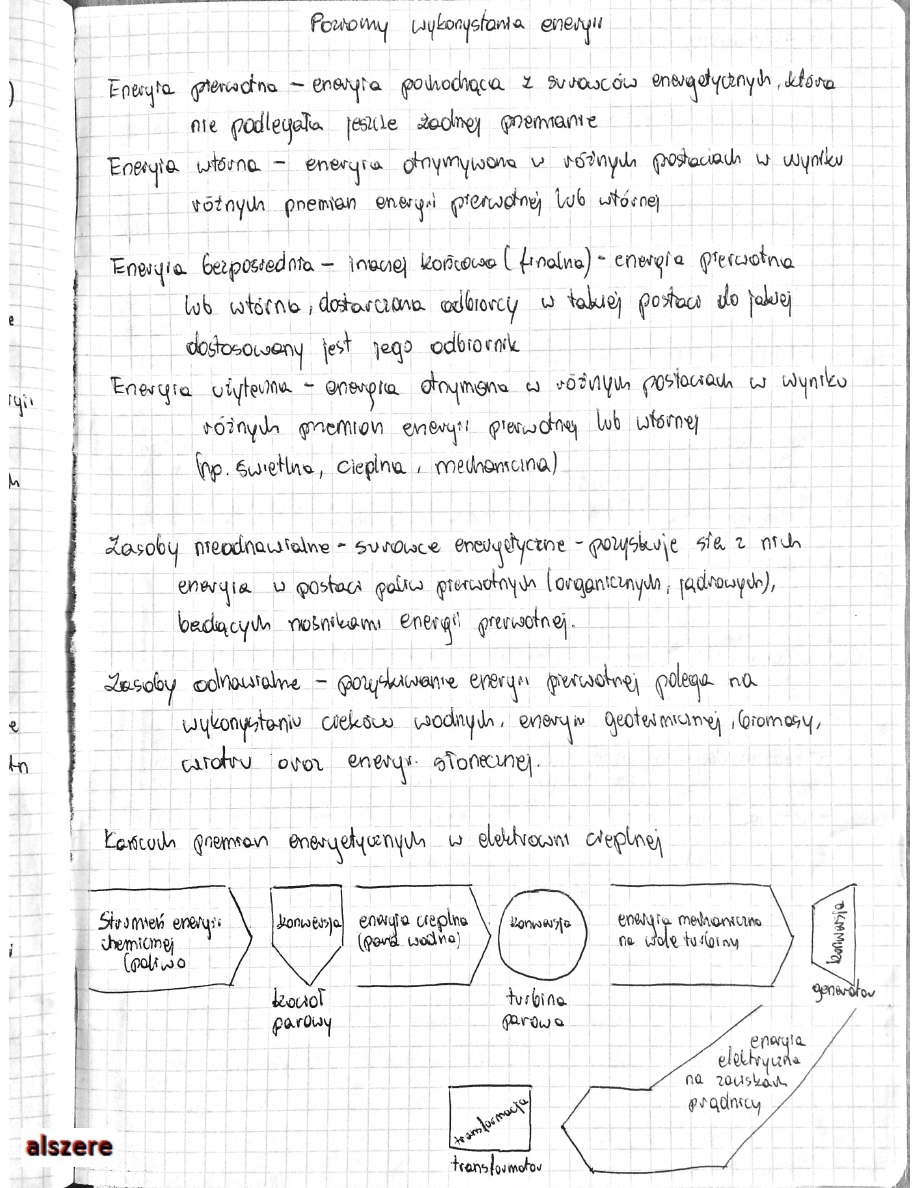 Poziomy wykorzystania energii
Energia pierwotna – energia pochodząca z surowców energetycznych, która
nie podlegała jeszcze żadnej przemianie
Energia wtórna – energia otrzymywana w różnych postaciach w wyniku
różnych przemian energii pierwotnej lub wtórnej
Energia bezpośrednia – inaczej końcowa (finalna) – energia pierwotna
lub wtórna, dostarczana odbiorcy w takiej postaci do jakiej
dostosowany jest jego odbiornik
Energia użyteczna – energia otrzymana w różnych postaciach w wyniku
różnych przemian energii pierwotnej lub wtórnej
(np. świetlna, cieplna, mechaniczna)
Zasoby nieodnawialne – surowce energetyczne – pozyskuje się z nich
energię w postaci paliw pierwotnych (organicznych, jądrowych),
będących nośnikami energii pierwotnej.
Zasoby odnawialne – pozyskiwanie energii pierwotnej polega na
wykorzystaniu cieków wodnych, energii geotermicznej, biomasy,
wiatru oraz energii słonecznej.
Łańcuch przemian energetycznych w elektrowni cieplnej
Strumień energii
chemicznej
(paliwo
konwersja
kocioł
parowy
energia cieplna
(para wodna)
konwersja
turbina
parowa
energia mechaniczna
na wale turbiny
konwersja
generator
energia
elektryczna
na zaciskach
prądnicy
transformacja
transformator
alszere